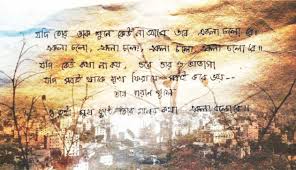 যদি তোর ডাক শুনে কেউ না আসে তবে একলা চলো রে॥
একলা চলো, একলা চলো, একলা চলো, একলা চলো রে॥
যদি কেউ কথা না কয়, ওরে ওরে ও অভাগা
যদি সবাই থাকে মুখ ফিরায়ে সবাই করে ভয়--
তবে পরান খুলি
ও তুই মুখ ফুটে তোর মনের কথা একলা বলো রে॥